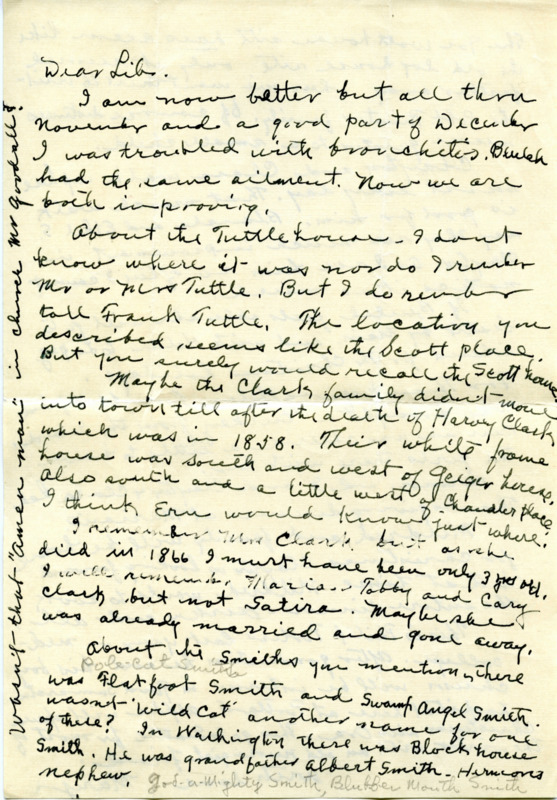 Dear Lib.
I am now better but all thru
November and a good part of December
I was troubled with bronchitis. Beulah
had the same ailment. Now we are
both improving.
About the Tuttle house - I dont
know where it was nor do I remember
Mr or Mrs Tuttle. But I do rember
tall Frank Tuttle. The location you
described seems like the Scott place,
But you surely would recall the Scott house
Maybe the Clark family didn't move
into town till after the death of Harvey Clark
which was in 1858. Their white frame
house was south and west of Geiger house.
Also south and a little west of Chandler place.
I think Ern would know just where.
I remember Mrs Clark but as she
died in 1866 I must have been only 3 yrs old.
I well remember Maria - Tobby and Cary
Clark but not Satira. Maybe she
was already married and gone away.
About the Smiths you mention, there
Pole-Cat Smith
was Flatfoot Smith and Swamp Angel Smith.
wasnt "Wild Cat" another name for one
of these? In Washington there was Block house
Smith. He was grandfather Albert Smith - Hermons
nephew.
God-a-Mighty Smith, Blubber Mouth Smith
wasn't that "amen man" in church Mr Goodall?